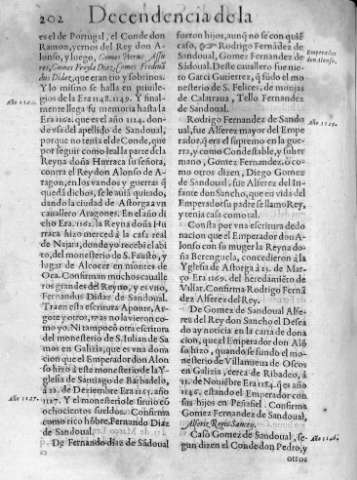 202 Decendencia de la
es el de Portugal, el Conde don
Ramon, yernos del Rey don A-
lonso, y luego,
Didaz, que eran tio y sobrinos.
Y lo mismo se halla en priuile-
gios de la Era 1148. 1149. Y final-
mente llega su memoria hasta la
Era 1162. que es el año 1124. don-
de vsa del apellido de Sandoual,
porque no tenia el de Conde, que
por seguir como leal la parte de la
Reyna doña Hurraca su señora,
contra el Rey don Alonso de A-
ragon, en los vandos y guerras q̃
quedã dichos, se le auiã quitado,
dando la ciudad de Astorga a vn
cauallero Aragones. En el año di
cho Era 1162. la Reyna doña Hu
rraca hizo merced à la casa real
de Najara, donde yo recebi el abi
to, del monesterio de S. Fausto, y
lugar de Alcocer en montes de
Oca. Confirman muchos caualle
ros grandes del Reyno, y es vno,
Fernandus Didaz de Sandoual.
Traen esta escritura Aponte, Ar-
gote y otros, mas no la vieron co-
mo yo. Ni tampocò otra escritura
del monesterio de S. Iulian de Sa
mos en Galizia, que es vna dona
cion que el Emperador don Alon
so hizo à este monesterio de la Y-
glesia de Santiago de Barbadelo,
à 12. de Deziembre Era 1165. año
1127. Y el monesterio le siruio cõ
ochocientos sueldos. Confirma
como rico hõbre, Fernando Diaz
de Sandoual.
De Fernando diaz de Sãdoual
fueron hijos, aunq̃ no se con quiẽ
casò, Rodrigo Fernãdez de
Sandoual, Gomez Fernandez
de Sandoual. Deste cauallero fue nieto
Garci Gutierrez, q̃ fũdo el mo
nesterio de S. Felices, de monjas
de Calatraua, Tello Fernandez
de Sandoual.
Rodrigo Fernandez de Sando-
ual, fue Alferez mayor del Empe
rador, q̃ era el supremo en la gue-
rra, y como Condestable, y su her
mano, Gomez Fernandez, ò co-
mo otros dizen, Diego Gomez
de Sandoual, fue Alferez del In-
fante don Sancho, que en vida del
Emperador su padre se llamo Rey,
y tenia casa como tal.
Consta por vna escritura de do
nacion que el Emperador don A-
lonso con su muger la Reyna do-
ña Berenguela, concedieron à la
Yglesia de Astorga à 15. de Mar-
ço Era 1169. del heredamiẽto de
Villar. Confirma Rodrigo Fernã
dez Alferez del Rey.
De Gomez de Sandoual Alfe-
rez del Rey don Sancho el Desea
do ay noticia en la carta de dona
cion, que el Emperador don Alõ
so hizo, quando se fundo el mo-
nesterio de Villanueua de Oscos
en Galizia, cerca de Ribadeo, à
11. de Nouiẽbre Era 1184. q̃ es año
1146. estando el Emperador con
sus hijos en Peñafiel. Confirma
Gomez Fernandez de Sandoual,
Alferiz Regis Sancij.
Casò Gomez de Sandoual, se-
gun dizen el Conde don Pedro, y
otros
Año 1124.
Año 1127.
Emperador
don Alonso.
Año 1146.